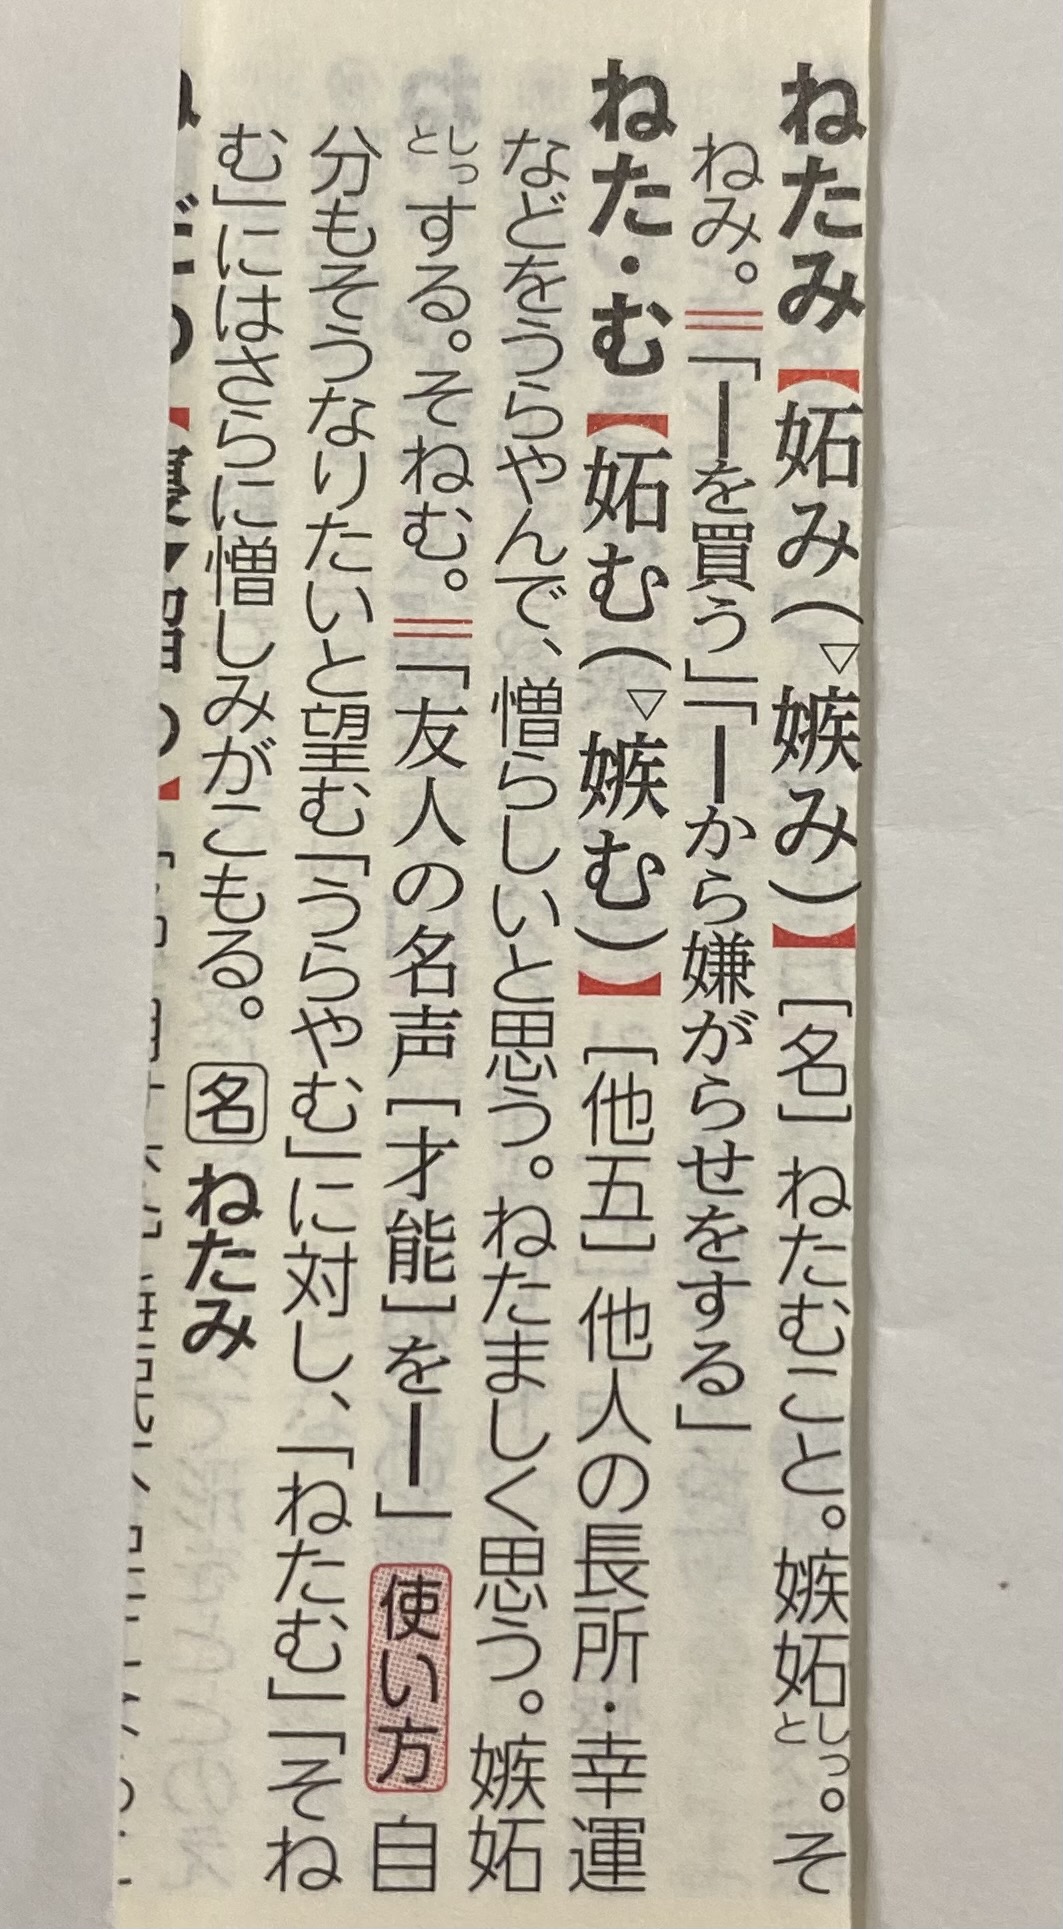 ねたみ【妬み(▽嫉み)】[名] ねたむこと。嫉妬しっと。そ
ねみ。「━を買う」「━から嫌がらせをする」
ねた・む【妬む(▽嫉む)】[他五] 他人の長所・幸運
などをうらやんで、憎らしいと思う。ねたましく思う。嫉妬
しっとする。そねむ。「友人の名声[才能]を━」 使い方 自
分もそうなりたいと望む「うらやむ」に対し、「ねたむ」「そね
む」にはさらに憎しみがこもる。 名 ねたみ